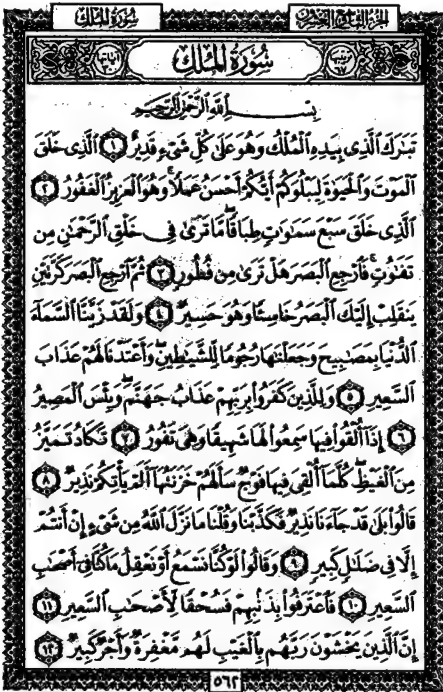 سُورَةُ المُلْكِ
الجُزءُ التَّاسِعُ وَالعِشْرُونَ
سُورَةُ المُلْكِ
بِسْمِ اللَّهِ الرَّحْمَٰنِ الرَّحِيمِ
تَبَٰرَكَ ٱلَّذِى بِيَدِهِ ٱلْمُلْكُ وَهُوَ عَلَىٰ كُلِّ شَىْءٍ قَدِيرٌ ١ ٱلَّذِى خَلَقَ
ٱلْمَوْتَ وَٱلْحَيَوٰةَ لِيَبْلُوَكُمْ أَيُّكُمْ أَحْسَنُ عَمَلًا وَهُوَ ٱلْعَزِيزُ ٱلْغَفُورُ ٢
ٱلَّذِى خَلَقَ سَبْعَ سَمَٰوَٰتٍ طِبَاقًا مَّا تَرَىٰ فِى خَلْقِ ٱلرَّحْمَٰنِ مِن
تَفَٰوُتٍ فَٱرْجِعِ ٱلْبَصَرَ هَلْ تَرَىٰ مِن فُطُورٍ ٣ ثُمَّ ٱرْجِعِ ٱلْبَصَرَ كَرَّتَيْنِ
يَنقَلِبْ إِلَيْكَ ٱلْبَصَرُ خَاسِئًا وَهُوَ حَسِيرٌ ٤ وَلَقَدْ زَيَّنَّا ٱلسَّمَآءَ
ٱلدُّنْيَا بِمَصَٰبِيحَ وَجَعَلْنَٰهَا رُجُومًا لِّلشَّيَٰطِينِ وَأَعْتَدْنَا لَهُمْ عَذَابَ
ٱلسَّعِيرِ ٥ وَلِلَّذِينَ كَفَرُوا۟ بِرَبِّهِمْ عَذَابُ جَهَنَّمَ وَبِئْسَ ٱلْمَصِيرُ
٦ إِذَآ أُلْقُوا۟ فِيهَا سَمِعُوا۟ لَهَا شَهِيقًا وَهِىَ تَفُورُ ٧ تَكَادُ تَمَيَّزُ
مِنَ ٱلْغَيْظِ كُلَّمَآ أُلْقِىَ فِيهَا فَوْجٌ سَأَلَهُمْ خَزَنَتُهَآ أَلَمْ يَأْتِكُمْ نَذِيرٌ ٨
قَالُوا۟ بَلَىٰ قَدْ جَآءَنَا نَذِيرٌ فَكَذَّبْنَا وَقُلْنَا مَا نَزَّلَ ٱللَّهُ مِن شَىْءٍ إِنْ أَنتُمْ
إِلَّا فِى ضَلَٰلٍ كَبِيرٍ ٩ وَقَالُوا۟ لَوْ كُنَّا نَسْمَعُ أَوْ نَعْقِلُ مَا كُنَّا فِىٓ أَصْحَٰبِ
ٱلسَّعِيرِ ١٠ فَٱعْتَرَفُوا۟ بِذَنۢبِهِمْ فَسُحْقًا لِّأَصْحَٰبِ ٱلسَّعِيرِ ١١
إِنَّ ٱلَّذِينَ يَخْشَوْنَ رَبَّهُم بِٱلْغَيْبِ لَهُم مَّغْفِرَةٌ وَأَجْرٌ كَبِيرٌ ١٢
٥٦٢